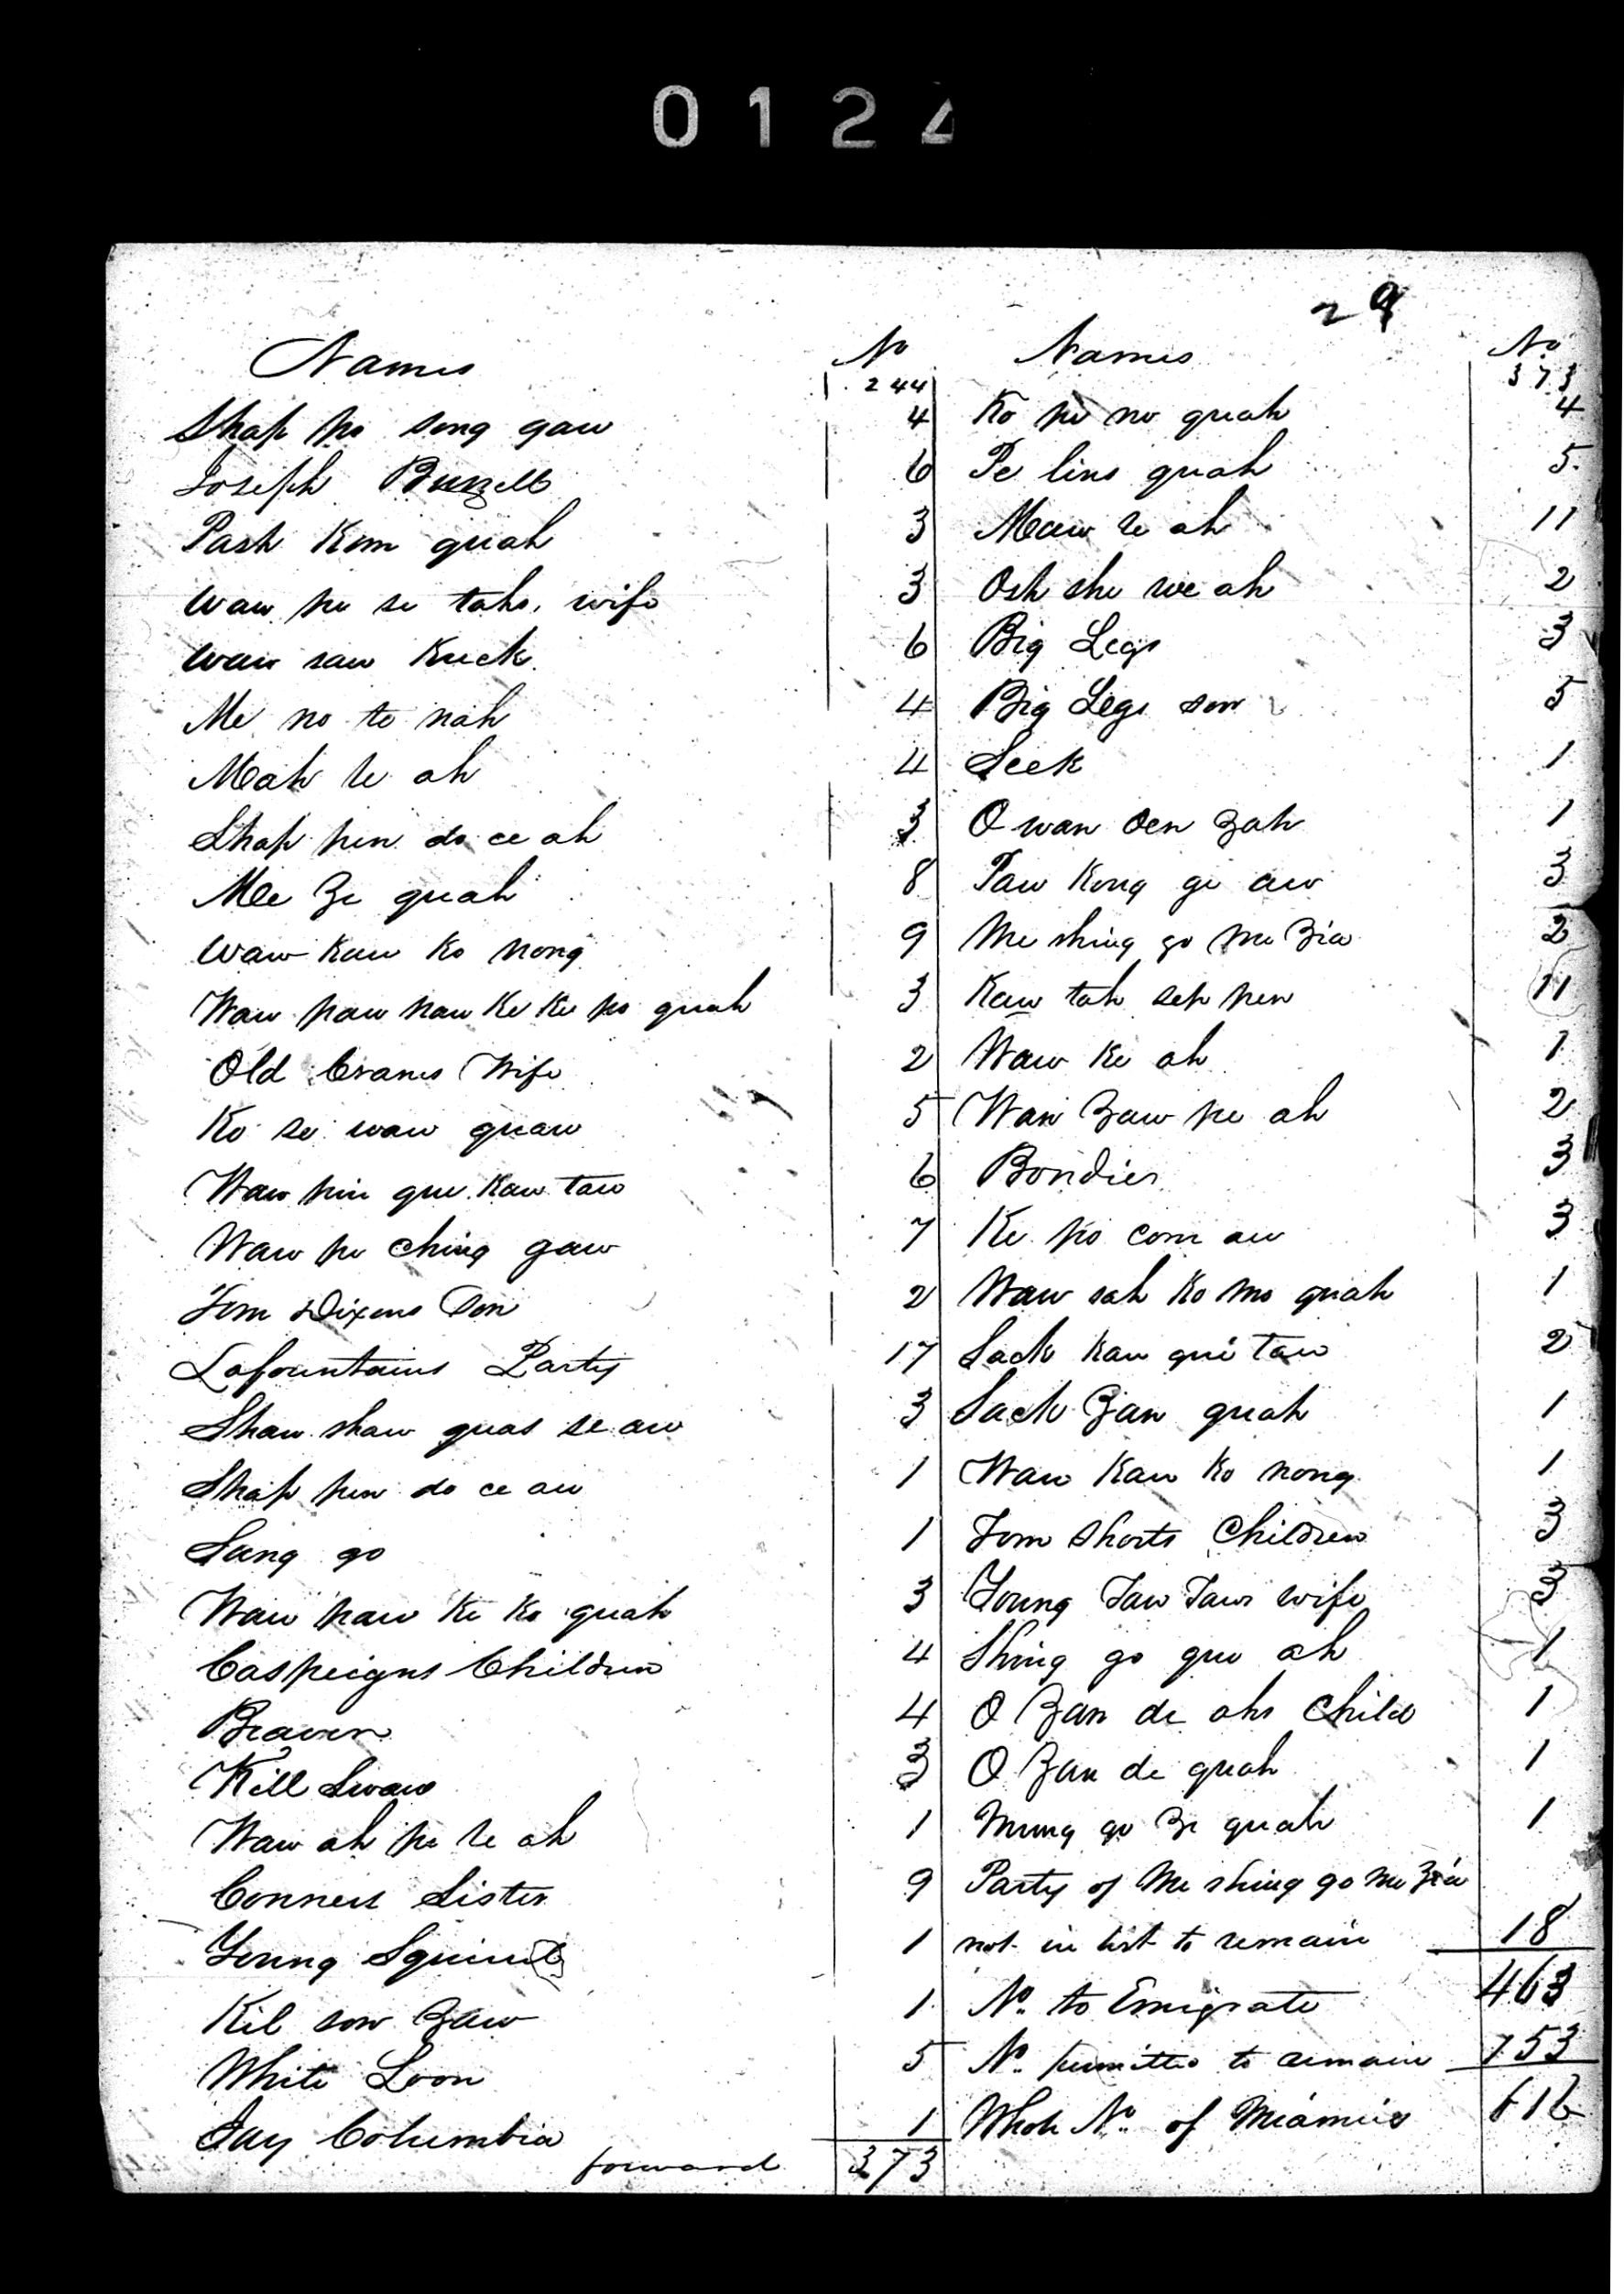 0124
29
Names No
244
Shap po song gaw 4
Joseph Bunzell 6
Pash Kom quah 3
Waw pe se tahs, wife 3
Waw saw Kuck 6
Me no te nah 4
Mah te ah 4
Shap pen do ce ah 3
Me Ze quah 8
Waw Kaw Ko nong 9
Waw paw naw Ke Ke po quah 3
Old Cranes Wife 2
Ko se waw quaw 5
Waw pin que Kaw taw 6
Waw pe ching gaw 7
Tom Dixons Son 2
Lafountains Party 17
Shaw shaw quas se aw 3
Shap pen do ce aw 1
Sang go 1
Waw paw Ke Ko quah 3
Caspeigns Children 4
Beaver 4
Kill Swaw 3
Waw ah pe te ah 1
Conners Sister 9
Young Squirrel 1
Kil son Zaw 1
White Loon 5
Jay Columbia 1
forward 373
Names No
373
Ko pe no quah 4
Pe lins quah 5
Maw te ah 11
Osh she we ah 2
Big Legs 3
Big Legs son 5
Seek 1
O wan den Zah 1
Taw Kong ge aw 3
Me shing go me Zia 2
Kaw tah seh pen 11
Waw Ke ah 1
Waw Zaw pe ah 2
Bondier 3
Ke po com aw 3
Waw sah Ko mo quah 1
Sack kaw que taw 2
Sack Zaw quah 1
Waw Kaw Ko nong 1
Tom Shorts Children 3
Young Taw Taws wife 3
Shing go que ah 1
O Zan de ahs Child 1
O Zan de quah 1
Mung go Ze quah 1
Party of Me shing go me Zia
not in list to remain 18
463
No. to Emigrate
No. permitted to remain 153
Whole No. of Miamies 616